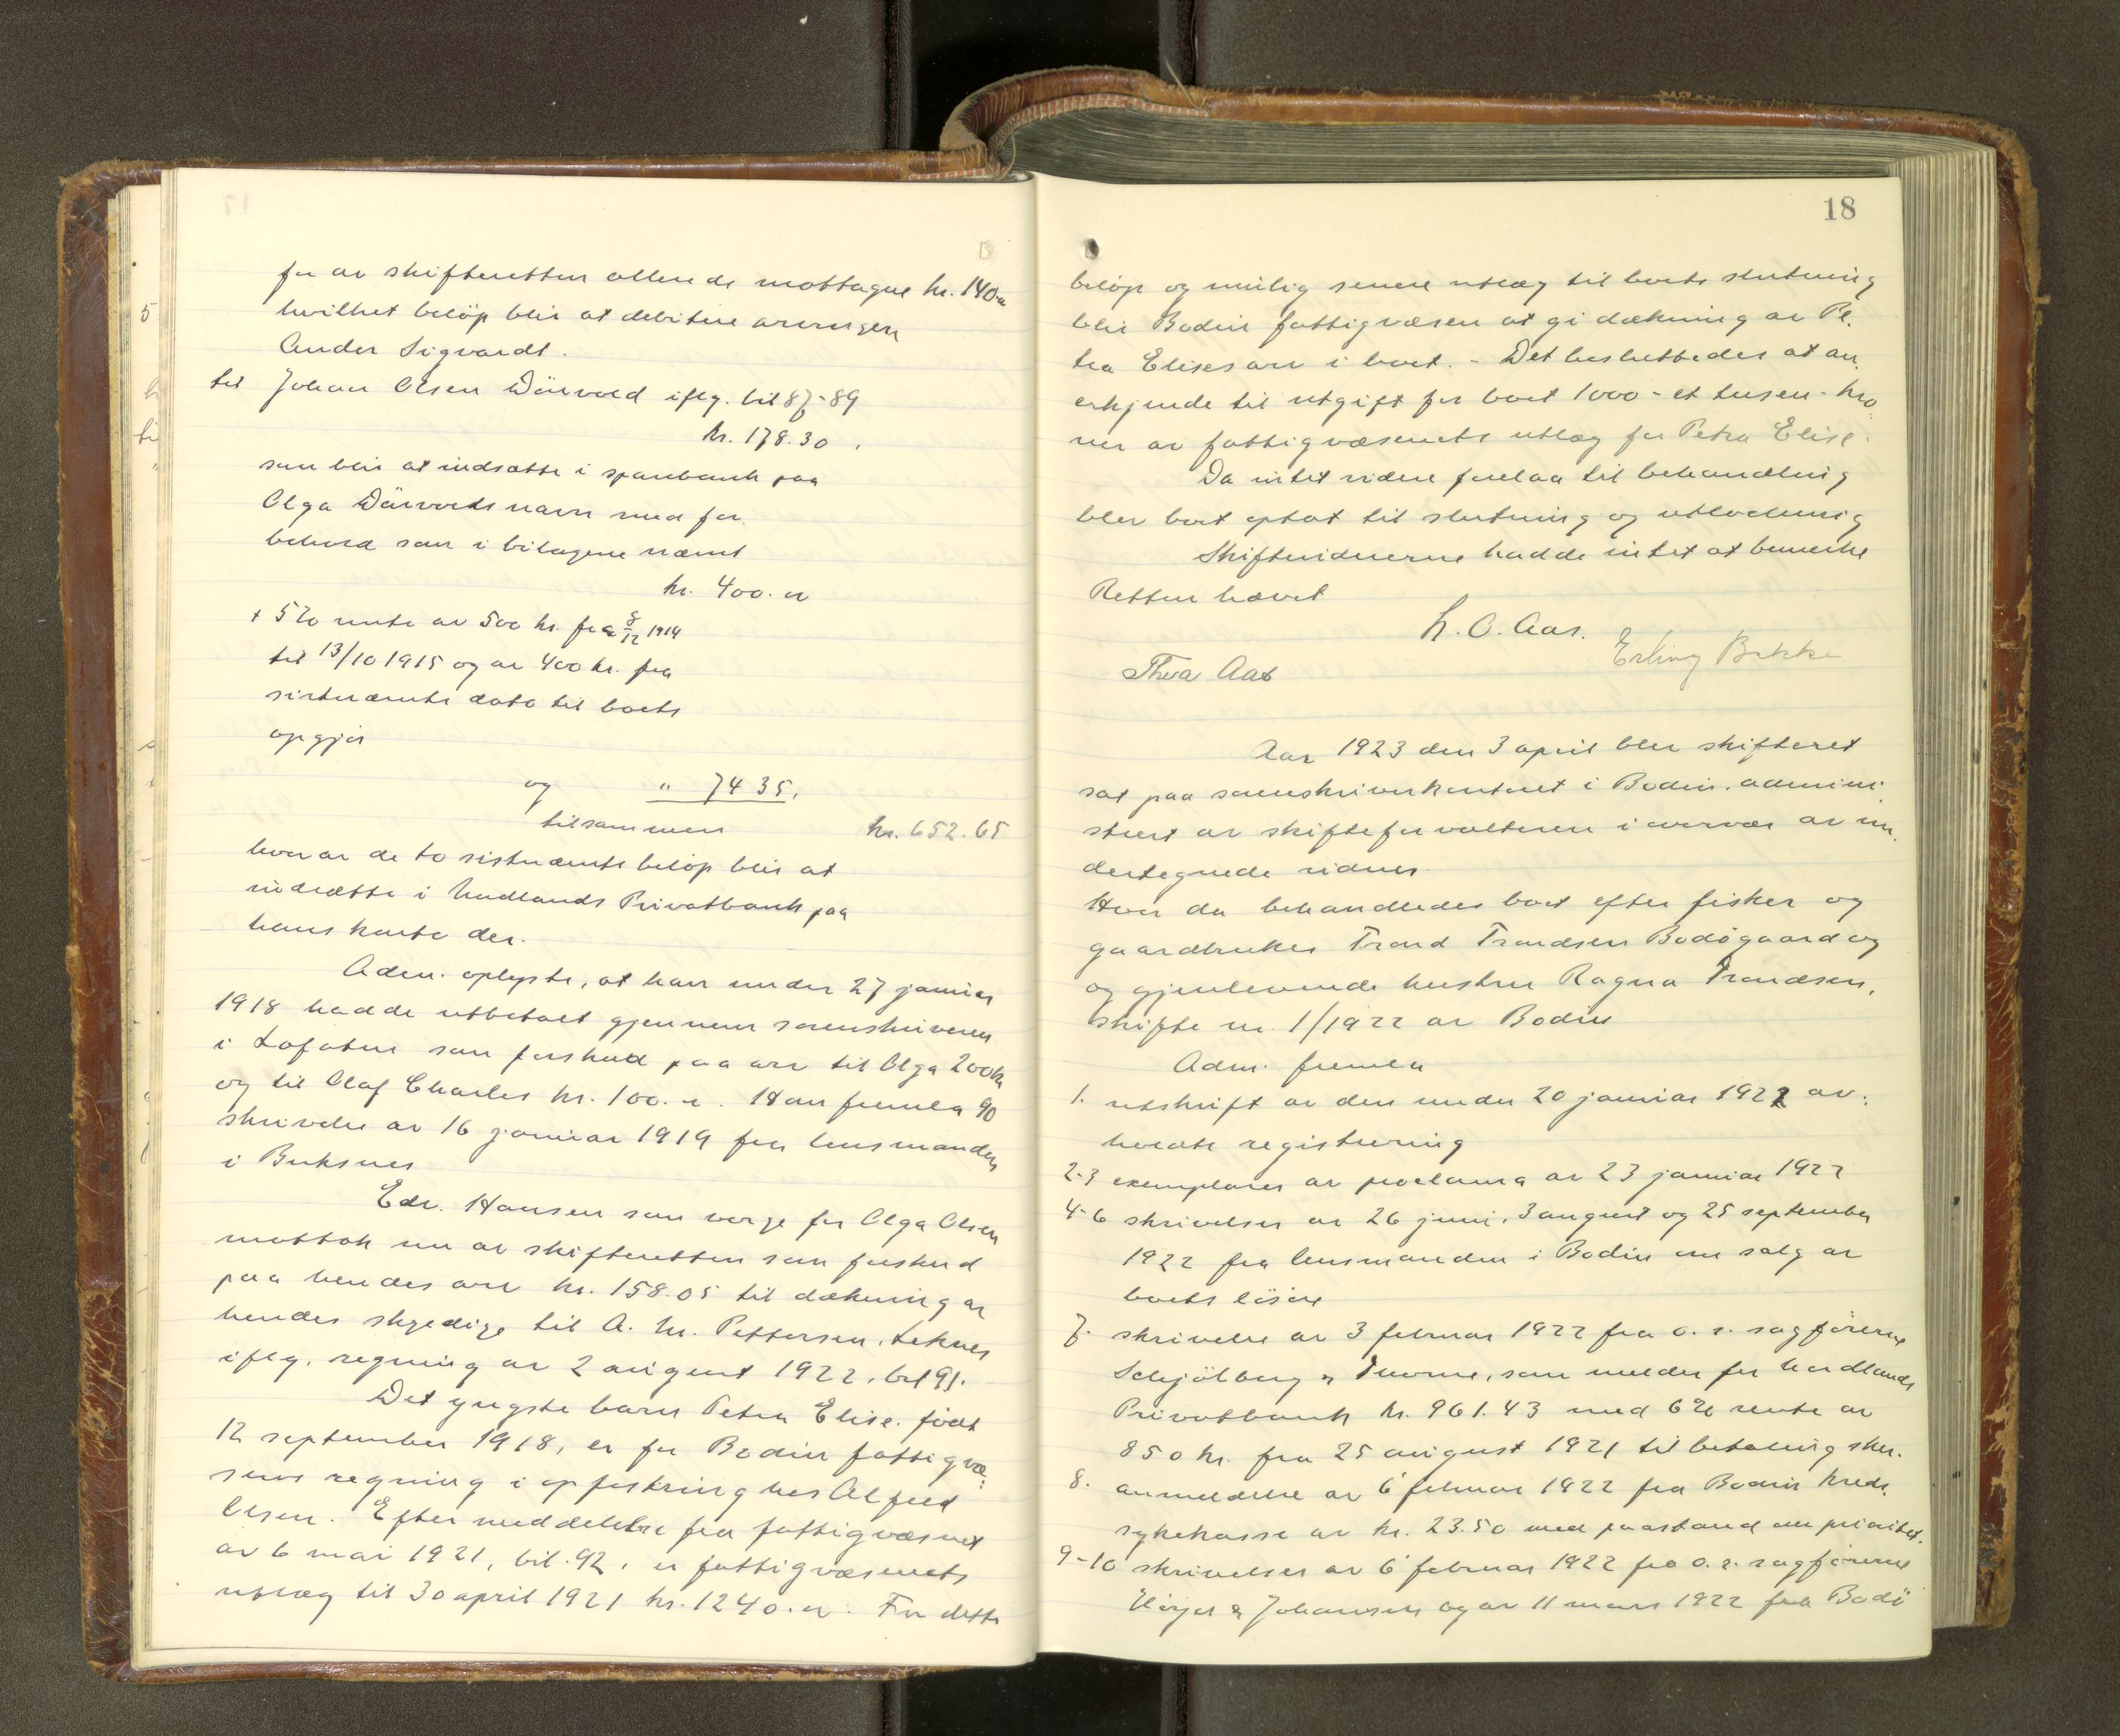 for av skifteretten allerede mottagne kr. 140.
hvilket beløp blir at debitere arvingen
Ander Sigvardt.
til Johan Olsen Dürvold iflg. bil 87-89
kr. 178.30.
som blir at indsætte i sparebank paa
Olga navn med for-
behold som i bilagene nævnt
kr. 400.
+ 5% rente av 500 kr. fra 8/12 1914
til 13/10 1915 og av 400 kr. fra
sistnævnte dato til boets
opgjør
og " 74 35.
tilsammen kr. 652.65
hvorav de to sistnævnte beløp blir at
indsætte i Nordlands Privatbank paa
hans konto der.
Adm. oplyste, at han under 27 januar
1918 hadde utbetalt gjennem sorenskriveren
i Lofoten som forskud paa arv til Olga 200 kr
og til Olaf Charles kr. 100. Han fremla 90
skrivelse av 16 januar 1919 fra lensmanden
i Buksnes
Edv. Hansen som verge for Olga Olsen
mottok nu av skifteretten som forskud
paa hendes arv kr. 158.05 til dækning av
hendes skyldige til A. M. Pettersen, Leknes
iflg. regning av 2 august 1922, bil 91.
Det yngste barn Petra Elise, født
12 september 1918, er for Bodin fattigvæ-
sens regning i opfostring hos Alfred
Olsen. Efter meddelelse fra fattigvæsnet
av 6 mai 1921, bil. 92, er fattigvæsenets
utlæg til 30 april 1921 kr. 1240. For dette
18
beløp og mulig senere utlæg til boets slutning
blir Bodin fattigvæsen at gi dækning av Pe-
tra Elises arv i boet. - Det besluttedes at an-
erkjende til utgift for boet 1000 - et tusen - kro-
ner av fattigvæsenets utlæg for Petra Elise.
Da intet videre forelaa til behandling
blev boet optat til slutning og utlodning
Skiftevidnerne hadde intet at bemerke
Retten hævet
L. O. Aas.
Erling Bakke
Thora Aas
Aar 1923 den 3 april blev skifteret
sat paa sorenskriverkontoret i Bodin, admini-
strert av skifteforvalteren i overvær av un-
dertegnede vidner.
Hvor da behandledes boet efter fisker og
gaardbruker Trond Trondsen Bodøgaard og
og gjenlevende hustru Ragna Trondsen,
skifte nr. 1/1922 av Bodin
Adm. fremla
1. utskrift av den under 20 januar 1922 av-
holdte registrering
2-3 exemplarer av proclama av 23 januar 1922
4-6 skrivelser av 26 juni, 3 august og 25 september
1922 fra lensmanden i Bodin om salg av
boets løsøre
7. skrivelse av 3 februar 1922 fra o. r. sagførerne
Schjölberg & Thorne, som melder for Nordlands
Privatbank kr. 961.43 med 6% rente av
850 kr. fra 25 august 1921 til betaling sker.
8. anmeldelse av 6 februar 1922 fra Bodin kreds-
sykekasse av kr. 23.50 med paastand om prioritet.
9-10 skrivelser av 6 februar 1922 fra o. r. sagførerne
& Johansen og av 11 mars 1922 fra Bodö